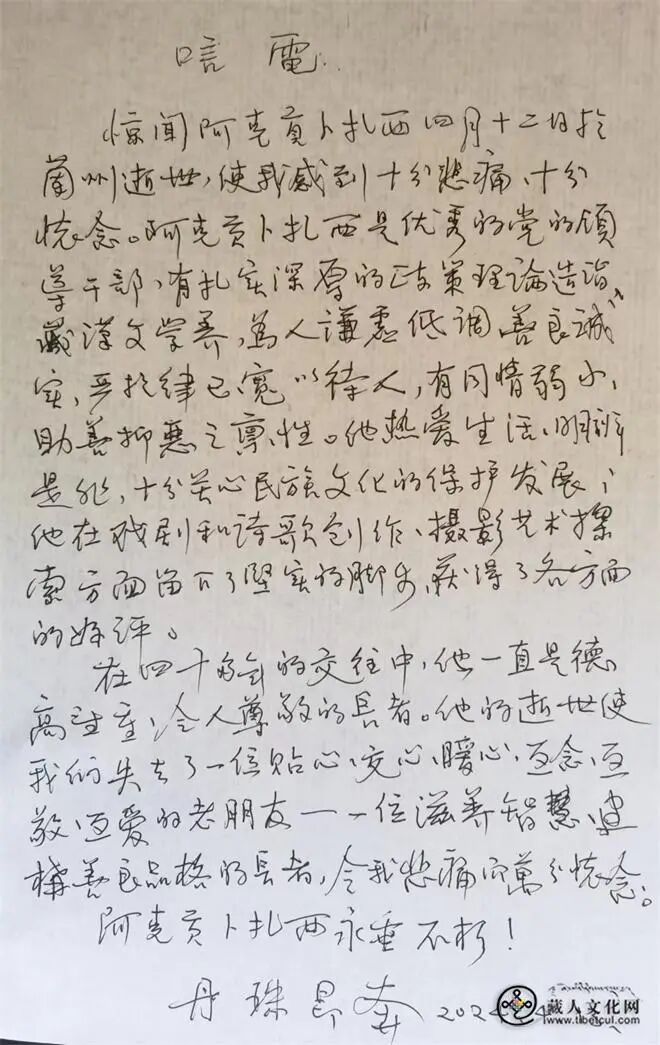 唁電
惊闻阿克贡卜扎西四月十二日於
蘭州逝世,使我感到十分悲痛、十分
怀念。阿克贡卜扎西是优秀的党的领
導干部,有扎实深厚的政策理論造诣、
藏漢文学养,為人謙虚低调善良誠
实,严於律己寬以待人,有同情弱小、
助善抑惡之禀性。他热爱生活、明辨
是非,十分关心民族文化的保护发展;
他在戏剧和诗歌创作、摄影艺术探
索方面留下了堅实的脚步,获得了各方面
的好评。
在四十多年的交往中,他一直是德
高望重、令人尊敬的長者。他的逝世使
我们失去了一位贴心、安心、暖心、互念、互
敬、互爱的老朋友——一位滋养智慧、建
構善良品格的長者,令我悲痛而萬分怀念。
阿克贡卜扎西永垂不朽!
丹珠昂奔 202
藏人文化网
www.tibetcul.com